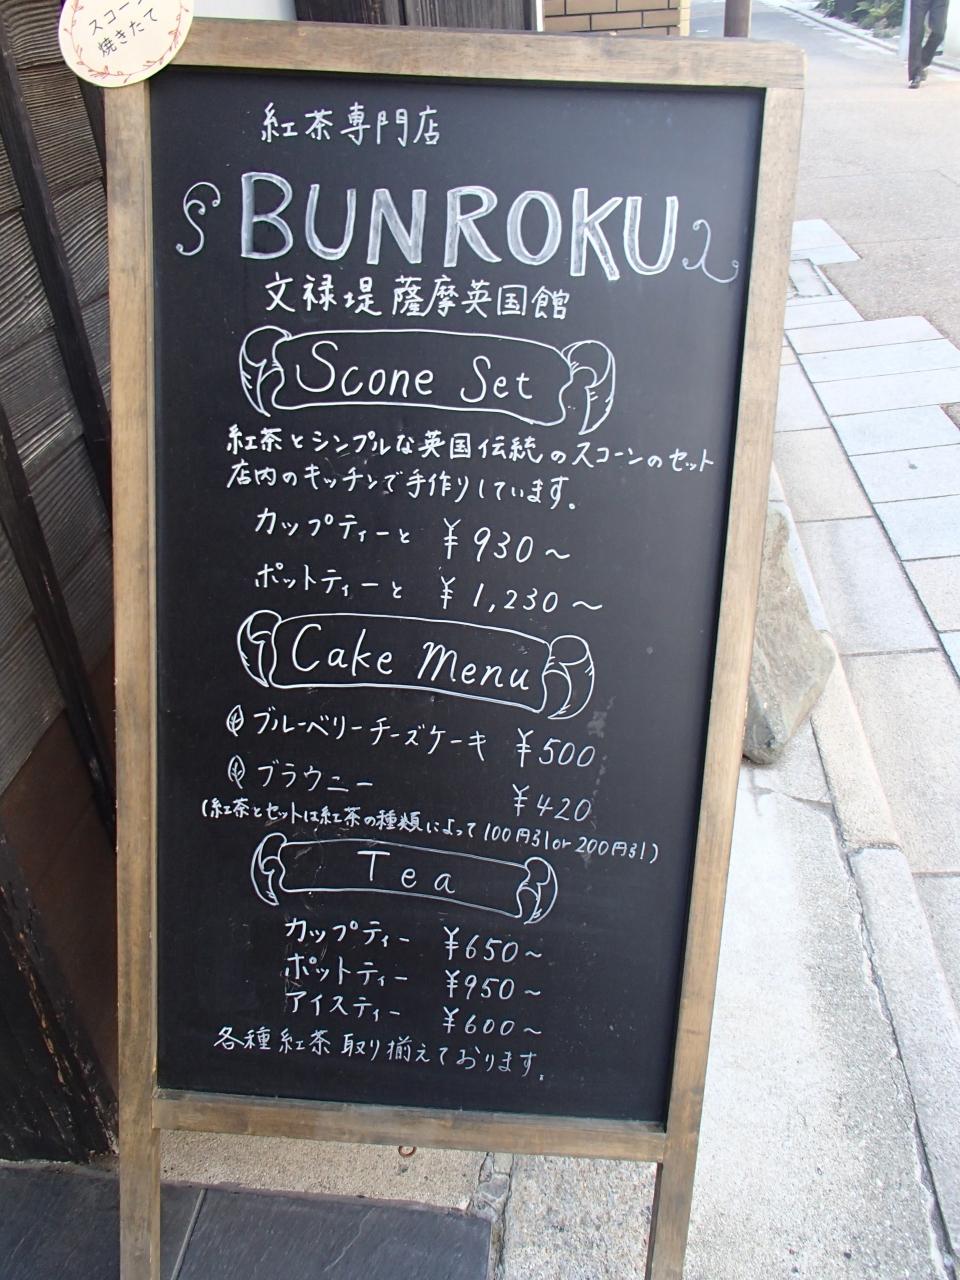 スコーン
焼きたて
紅茶専門店
BUNROKU
文禄堤薩摩英国館
Scone Set
紅茶とシンプルな英国伝統のスコーンのセット
店内のキッチンで手作りしています。
カップティーと ¥930~
ポットティーと ¥1,230~
Cake Menu
ブルーベリーチーズケーキ ¥500
ブラウニー ¥420
(紅茶とセットは紅茶の種類によって100円引or200円引)
Tea
カップティー ¥650~
ポットティー ¥950~
アイスティー ¥600~
各種紅茶取り揃えております。